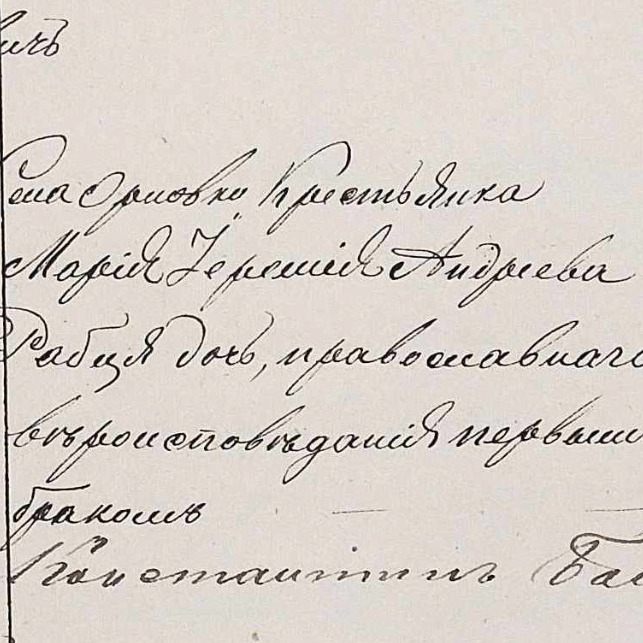 вичъ
Села Орловки Крестьянка
Марія Іереміія Андреева
Рабця дочь, православнаго
вѣроисповѣданія первымъ
бракомъ
Константинъ